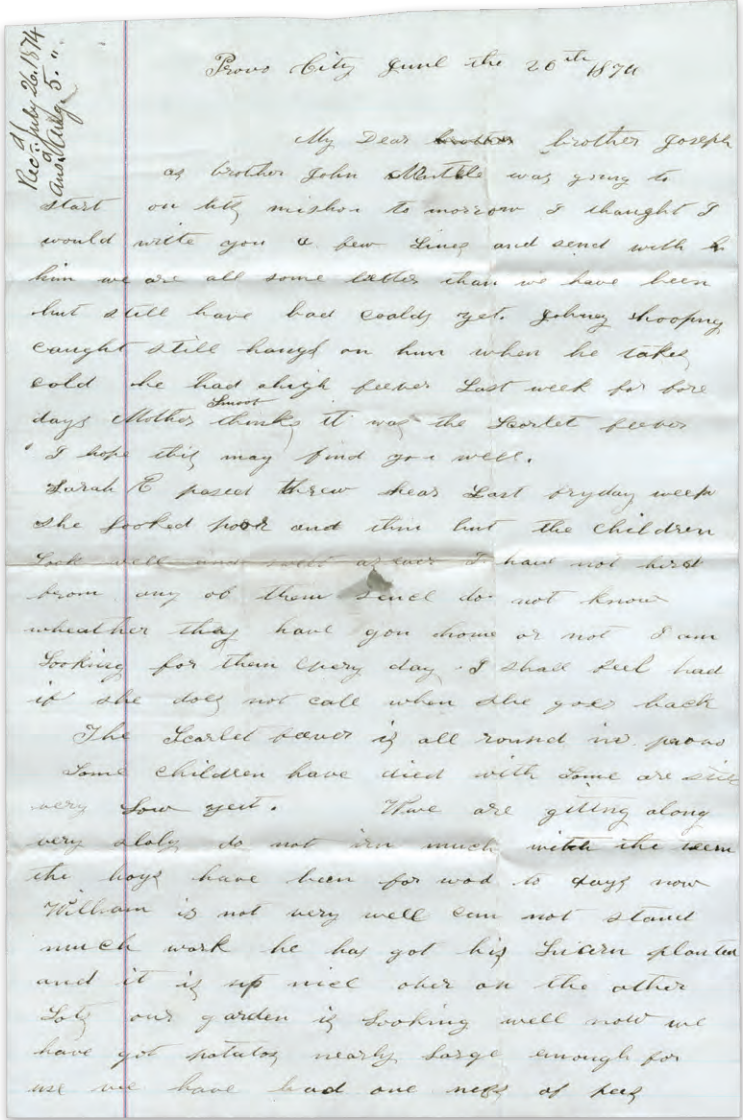 Recd July 26. 1874
Ansd Aug. 5. "
Provo City June the 26th 1874
My Dear brother Joseph
as brother John was going to
start on his mishon to morrow I thought I
would write you a few Lines and send with
him we are all some better than we have been
but still have bad coalds yet. Johney hooping
caught still hangs on him when he takes
cold he had a high feever Last week for fore
days Mother Smoot thinks it was the Scarlet feever
I hope this may find you well.
Sarah E pased threw hear Last fryday week
she Looked poor and thin but the children
Look well and I have not herd
from any of them sence do not know
wheather thay have gon home or not I am
Looking for them every day. I shall feel bad
if she does not call when she goes back
The Scarlet feever is all round in provo
Some children have died with Some are still
very Low yet. Wwe are giting along
very sloly do not irn much with the teem
the boys have been for wod to days now
William is not very well can not stand
much work he has got his planted
and it is up nice over on the other
Lots our garden is Looking well now we
have got potatos nearly Large enough for
use we have had one mess of peas